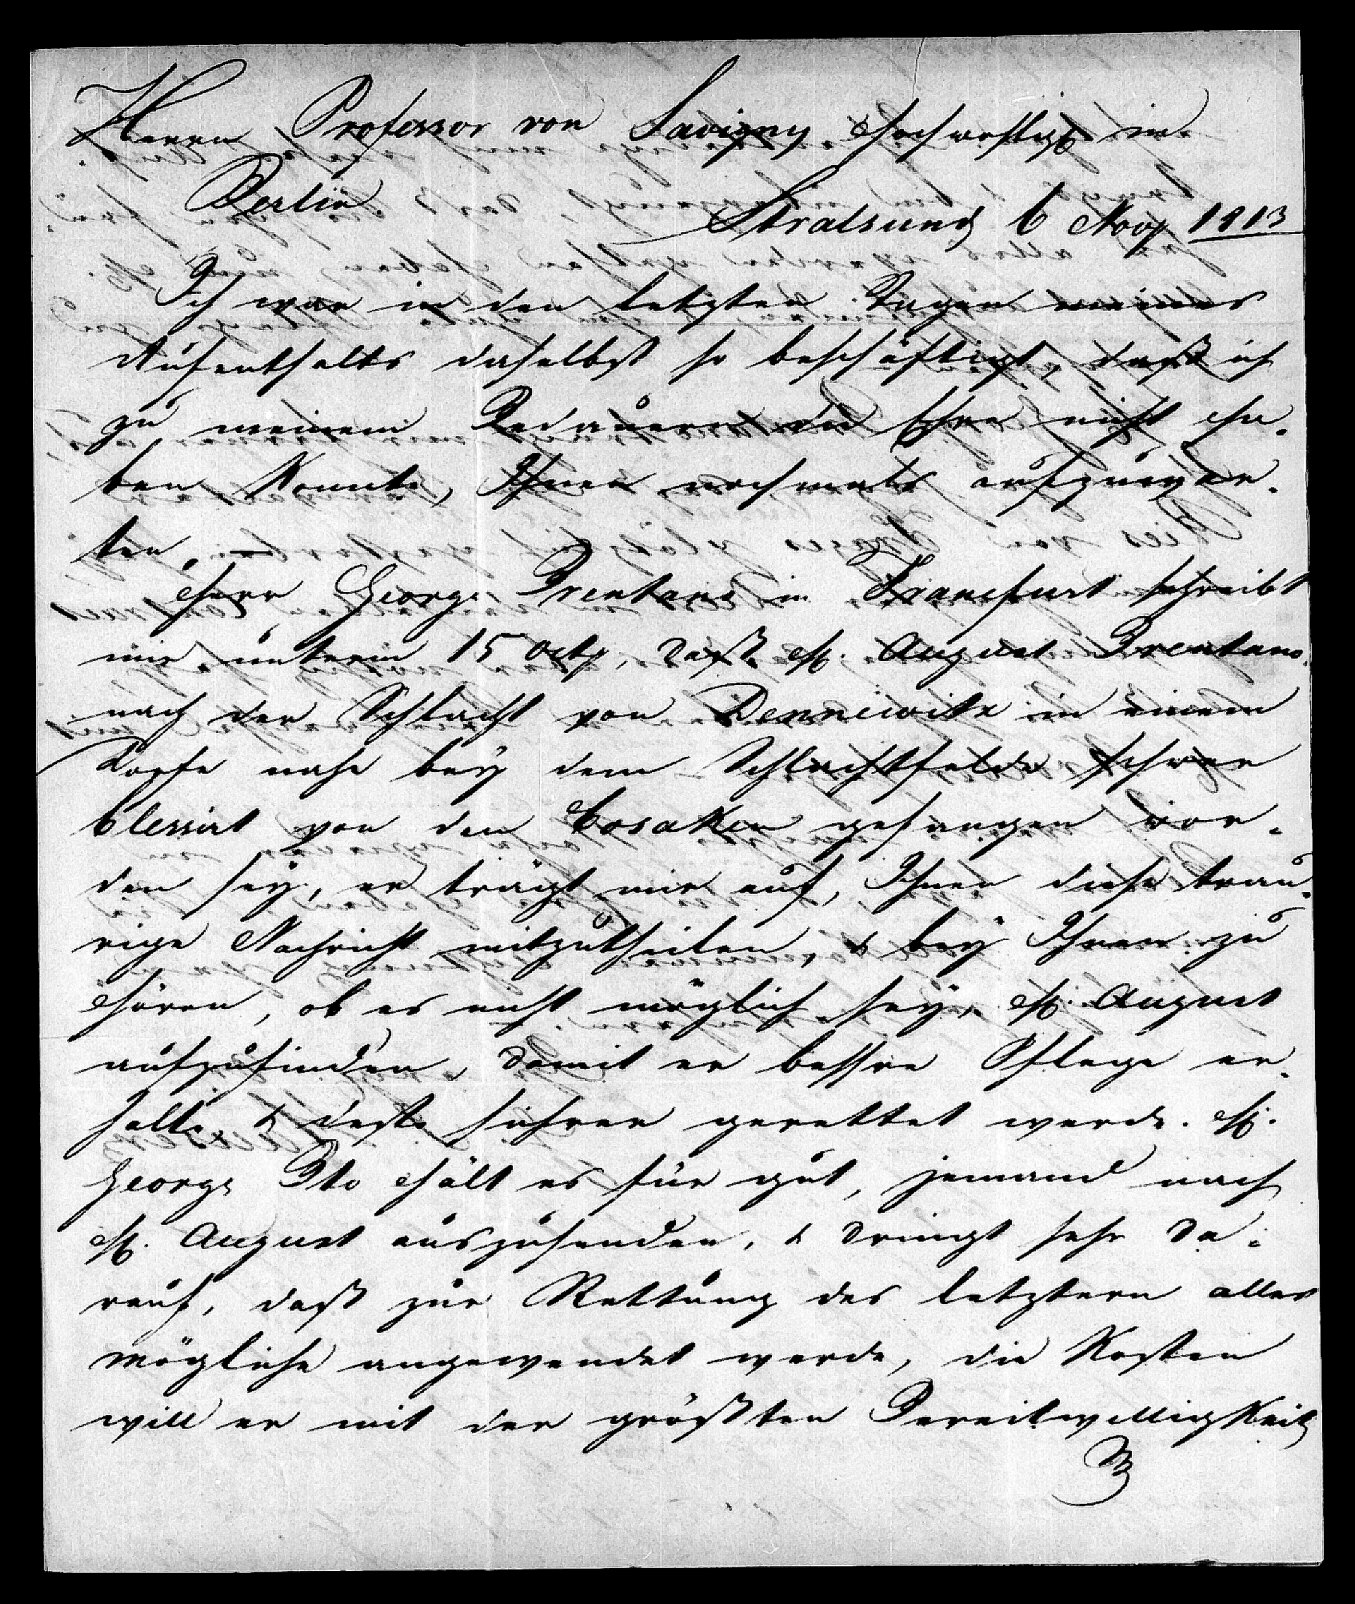 Herrn Professor von Savigny Hochwohlgb in
Berlin
Stralsund 6 Nov 1813
Ich war in den letzten Tagen meines
Aufenthalts daselbst so beschäftigt, daß ich
zu meinem Bedauern die Ehre nicht ha-
ben konnte, Ihnen nochmals aufzuwar-
ten.
Herr George Brentano in Francfurt schreibt
mir unterm 15 Oct, daß H. August Brentano
nach der Schlacht von Dennewitz in einem
Dorfe nahe bey dem Schlachtfelde schwer
blessirt von den Cosaken gefangen wor-
den sey, er trägt mir auf, Ihnen diese trau-
rige Nachricht mitzutheilen, & bey Ihnen zu
hören, ob es nicht möglich sey, H. August
aufzufinden, damit er bessre Pflege er-
halte & desto sichrer gerettet werde. H.
George Bto hält es für gut, jemand nach
H. August auszusenden, & dringt sehr da-
rauf, daß zur Rettung des letztern alles
mögliche angewendet werde, die Kosten
will er mit der größten Bereitwilligkeit